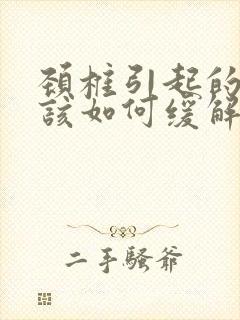 颈椎引起的
该如何缓解
二手骚爷